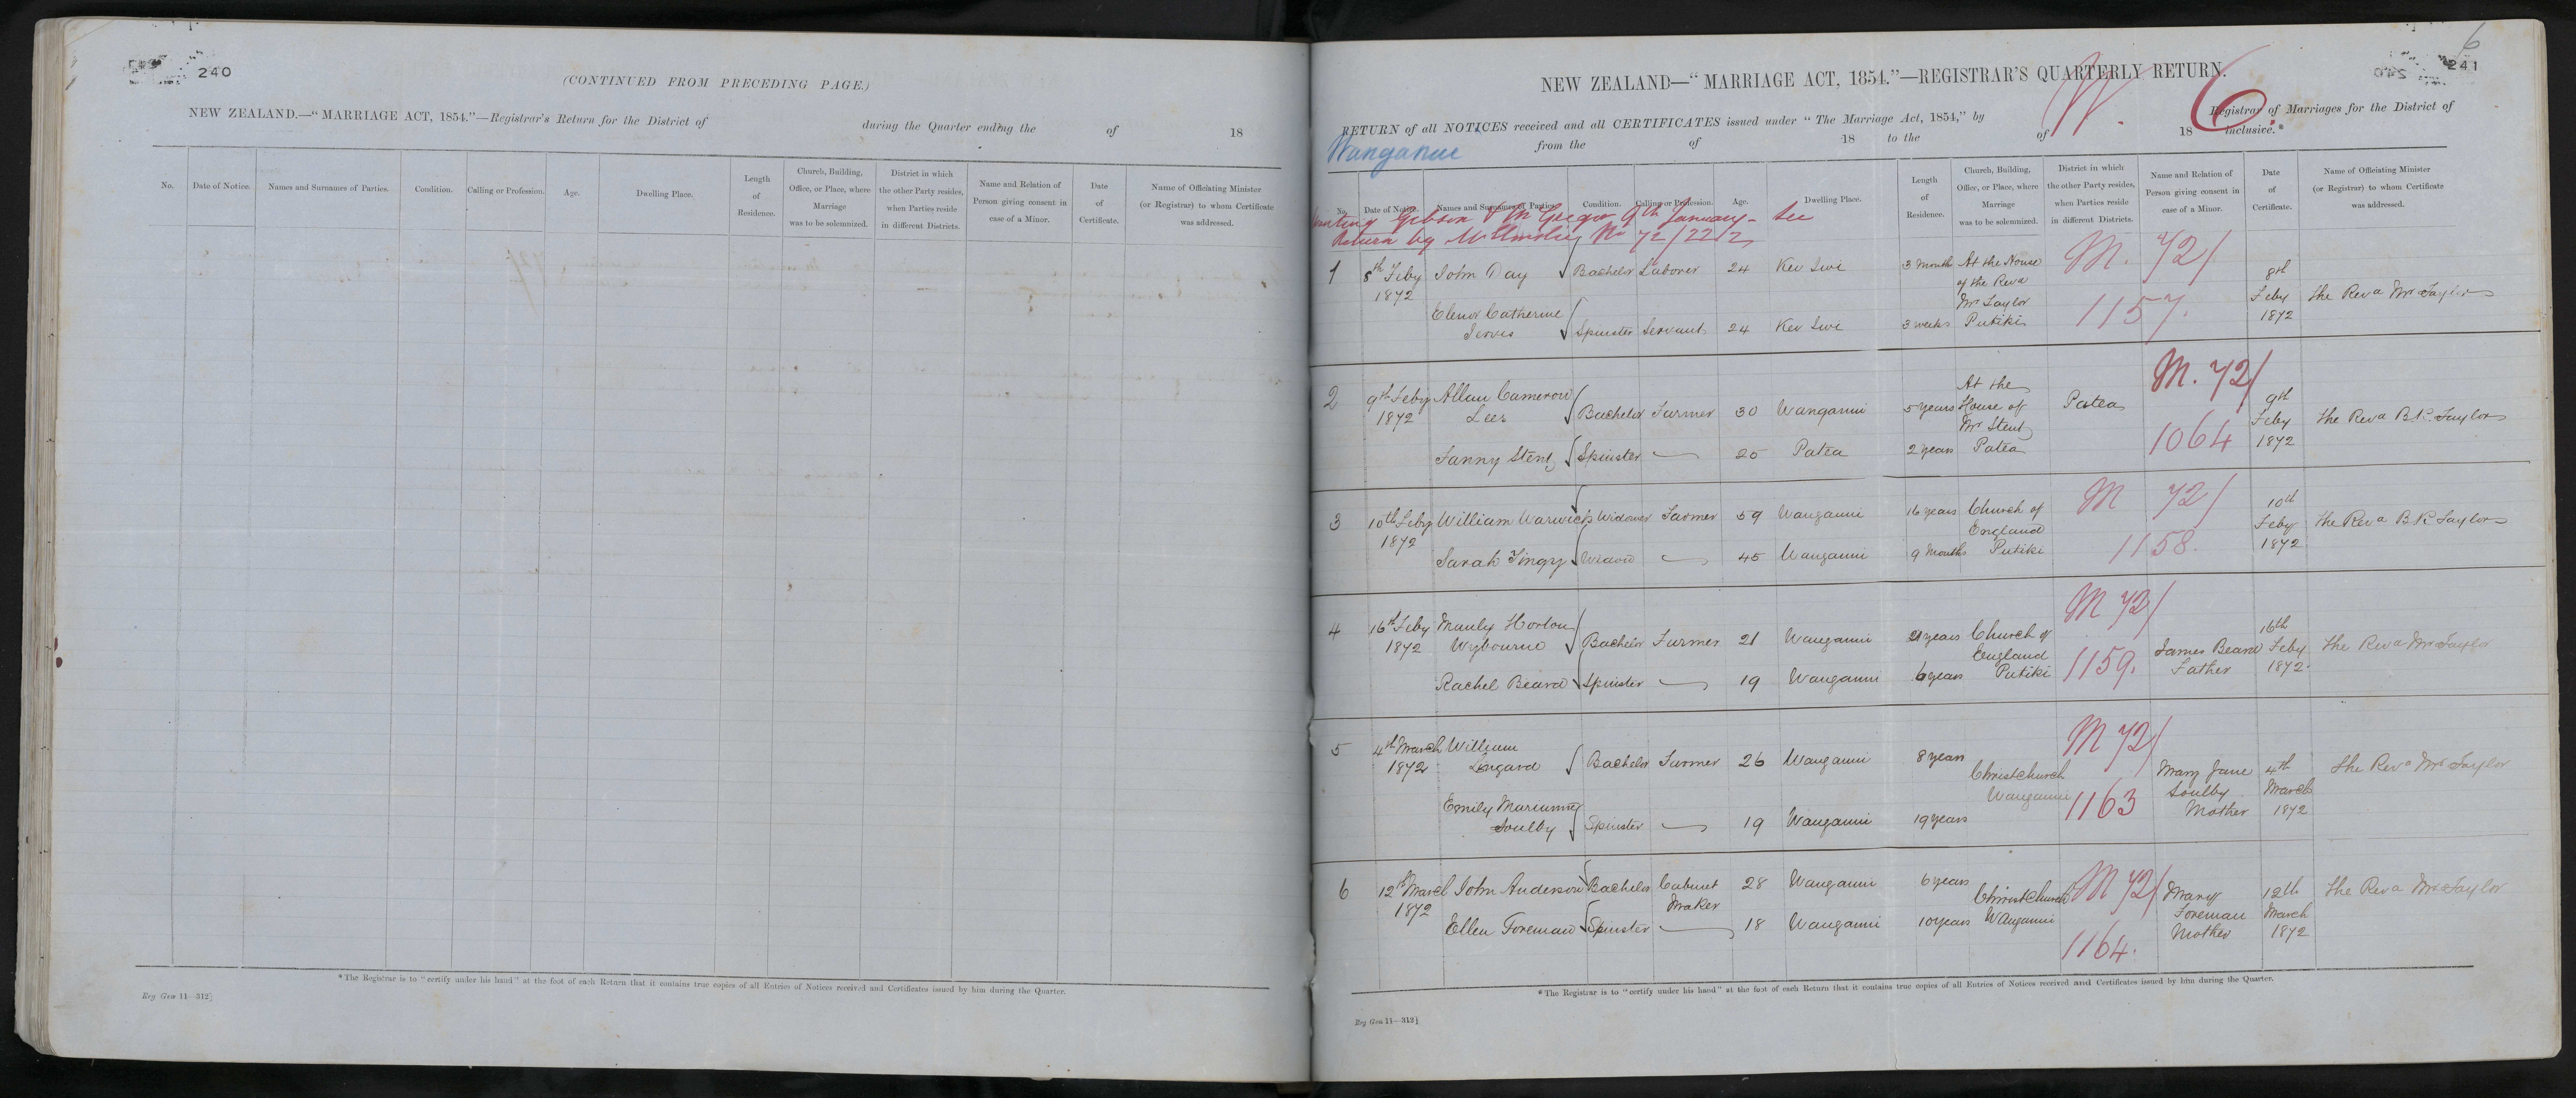 240
(CONTINUED FROM PRECEDING PAGE.)
NEW ZEALAND.—"MARRIAGE ACT, 1854."—Registrar's Return for the District of during the Quarter ending the of 18
No. Date of Notice. Names and Surnames of Parties. Condition. Calling or Profession. Age. Dwelling Place. Length of Residence. Church, Building, Office, or Place, where Marriage was to be solemnized. District in which the other Party resides, when Parties reside in different Districts. Name and Relation of Person giving consent in case of a Minor. Date of Certificate. Name of Officiating Minister (or Registrar) to whom Certificate was addressed.
*The Registrar is to "certify under his hand" at the foot of each Return that it contains true copies of all Entries of Notices received and Certificates issued by him during the Quarter.
Reg Gen 11—312]
6
241
NEW ZEALAND—"MARRIAGE ACT, 1854."—REGISTRAR'S QUARTERLY RETURN.
W. 6.
RETURN of all NOTICES received and all CERTIFICATES issued under "The Marriage Act, 1854," by Registrar of Marriages for the District of
Wanganui from the of 18 to the of 18 inclusive.*
No. Date of Notice. Names and Surnames of Parties. Condition. Calling or Profession. Age. Dwelling Place. Length of Residence. Church, Building, Office, or Place, where Marriage was to be solemnized. District in which the other Party resides, when Parties reside in different Districts. Name and Relation of Person giving consent in case of a Minor. Date of Certificate. Name of Officiating Minister (or Registrar) to whom Certificate was addressed.
Wanting Gibson & McGregor 9th January - See
Return by No 72/2212
1 8th Feby John Day Bachelor Laborer 24 Kai Iwi 3 Month At the House M. 72/ 8th
1872 of the Revd Feby the Revd Mr Taylor
Elenor Catherine Mr Taylor 1157. 1872
Jervis Spinster Servant 24 Kai Iwi 3 weeks Putiki
2 9th Feby Allan Cameron At the M. 72/
1872 Lees Bachelor Farmer 30 Wanganui 5 years House of Patea 9th the Revd B.K. Taylor
Mr Stent Feby
Fanny Stent Spinster 20 Patea 2 years Patea 1064 1872
3 10th Feby William Warwick Widower Farmer 59 Wanganui 16 years Church of M 72/ 10th the Revd B K Taylor
1872 England Feby
Sarah Tingy Widow 45 Wanganui 9 Months Putiki 1158. 1872
4 16th Feby Manley Horton M 72/ 16th
1872 Wybourne Bachelor Farmer 21 Wanganui 21 years Church of James Beard Feby the Revd Mr Taylor
England Father 1872.
Rachel Beard Spinster 19 Wanganui 6 years Putiki 1159.
5 4th March William M 72/
1872 Lingard Bachelor Farmer 26 Wanganui 8 years Christchurch Mary Jane 4th the Revd Mr Taylor
Emily Marianne Wanganui 1163 Soulby March
Soulby Spinster 19 Wanganui 19 years Mother 1872
6 12th March John Anderson Bachelor Cabinet 28 Wanganui 6 years Christchurch M 72/ Mary 12th the Revd Mr Taylor
1872 Maker Foreman March
Ellen Foreman Spinster 18 Wanganui 10 years Wanganui 1164. Mother 1872
*The Registrar is to "certify under his hand" at the foot of each Return that it contains true copies of all Entries of Notices received and Certificates issued by him during the Quarter.
Reg Gen 11—312]